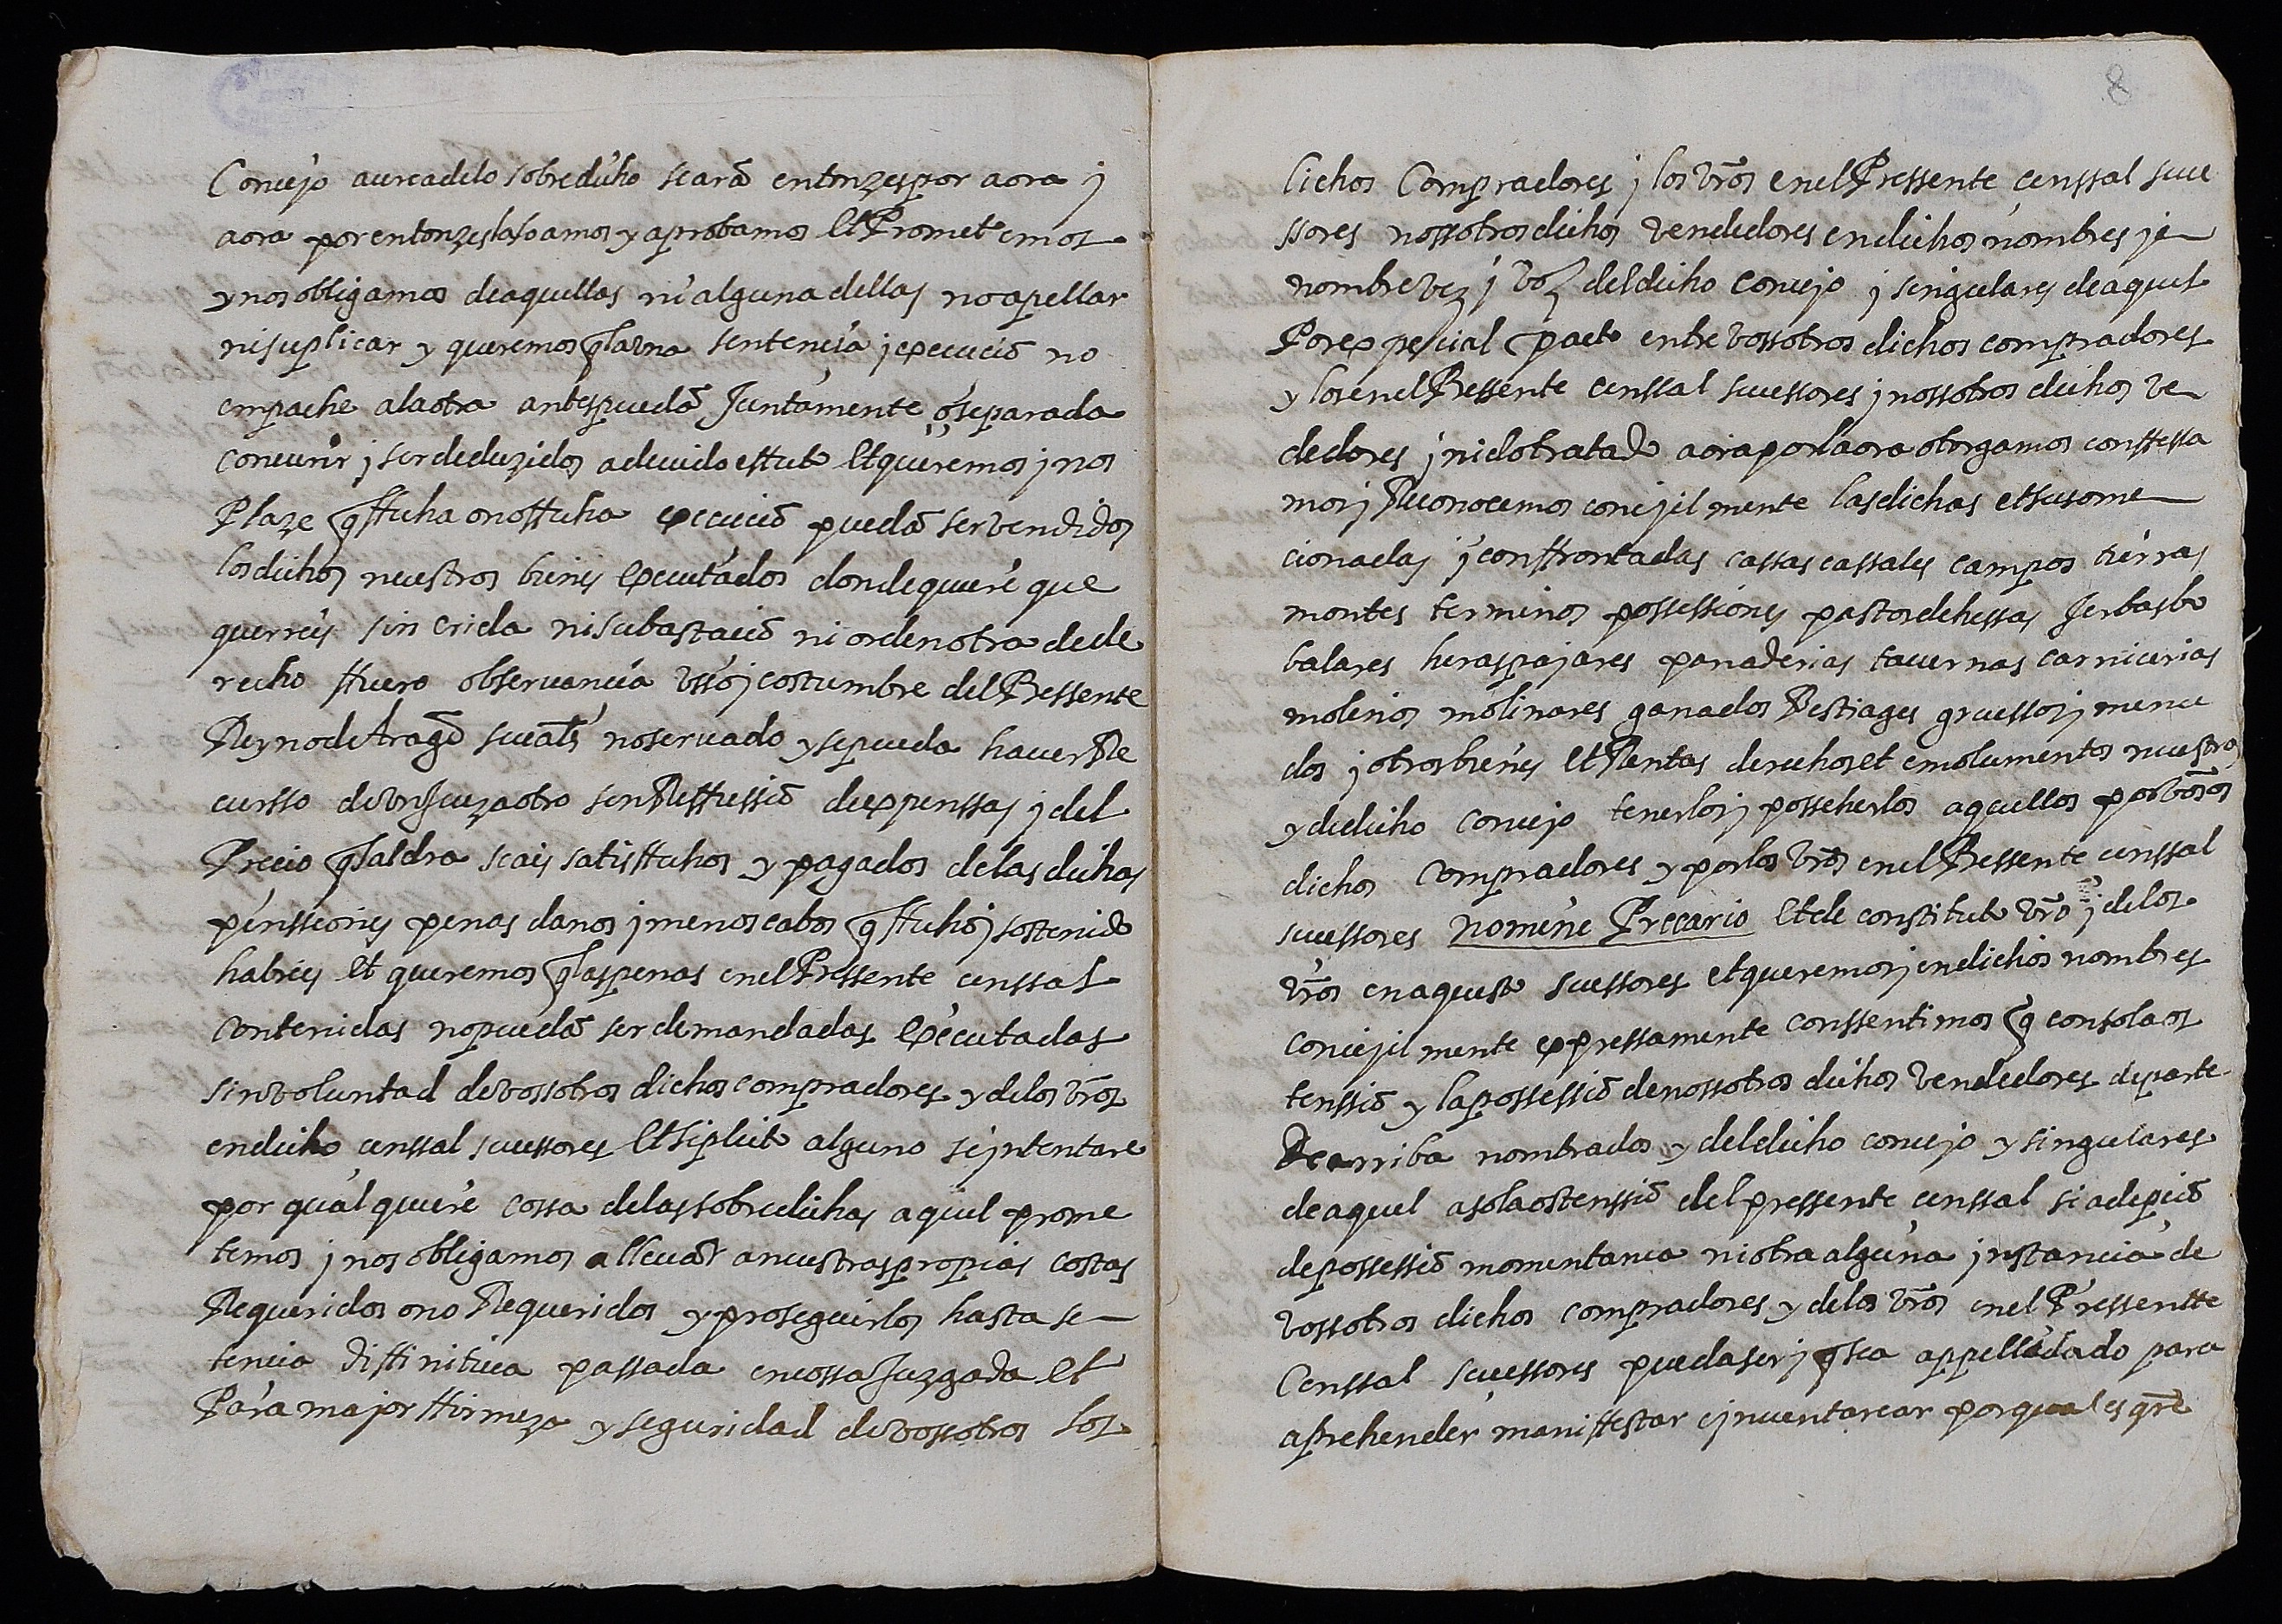 Concejo acerca de lo sobredicho seran entonzes por aora j
aora por entonzes las loamos y aprobamos Et Prometemos
y nos obligamos de aquellas ni alguna dellas no apellar
ni suplicar y queremos q̃ la una sentencia j execucio no
empache a la otra antes pueda Juntamente o separada
concurrir j ser deduzidos a deuido efftuto Et queremos j nos
Plaze q̃ ffecha o no ffecha execucio pueda ser vendidos
los dichos nuestros bienes executados donde quiere que
querreis sin crida ni subastacio ni orden otra de de
recho ffuero obseruancia usso j costumbre del Pressente
Reyno de Arago no seruado y se pueda hauer Re
cursso de un Juez a otro sin Reffussio de expenssas j del
Precio q̃ saldra seais satisffechos y pagados de las dichas
penssiones penas danos j menoscabos q̃ ffecho j sostenido
habreis Et queremos q̃ las penas en el Pressente censsal
contenidas no pueda ser demandadas executadas
sin voluntad de vossotros dichos compradores y de los vr̃os
en dicho censsal sucessores Et si pleito alguno se jntentare
por qual quiere cossa de las sobredichas aquel prome
temos j nos obligamos a lleuar a nuestras propias costas
Requeridos o no Requeridos y proseguirlos hasta se
tencia diffinitiua passada en cossa Juzgada Et
Para major ffirmeza y seguridad de vossotros los
8
dichos Compradores j los vr̃os en el Pressente censsal suce
ssores nossotros dichos vendedores en dichos nombres j e
nombre vez j voz del dicho concejo j singulares de aquel
Por expecial pacto entre vossotros dichos compradores
y los en el Pressente censsal sucessores j nossotros dichos ve
dedores jnido tratado aora por la ora otorgamos conffessa
mos j Reconocemos concejil mente las dichas et susome
cionadas j conffrontadas cassas cassales campos tierras
montes terminos possessiones pastos dehessas Jerbas bo
balares heras pajares panaderias tauernas carnicerias
molinos molinares ganados Bestiages gruessos j menu
dos j otros bienes Et Rentas derechos et emolumentos nuestros
y de dicho concejo tenerlos j posseherlos aquellos por vosos
dichos compradores y por los vr̃os en el Pressente censsal
sucessores nomine Precario Et de constituto vr̃o j de los
vr̃os en aqueste sucessores et queremos j en dichos nombres
concejil mente expressamente conssentimos q̃ con sola os
tenssio y la possessio de nossotros dichos vendedores de parte
de arriba nombrados y del dicho concejo y singulares
de aquel a sola ostenssio del pressente censsal si adepcio
de possessio momentanea ni otra alguna jnstancia de
vossotros dichos compradores y de los vr̃os en el Pressentte
Censsal sucessores pueda ser j q̃ sea appellidado para
aprehender maniffestar e jnuentarear por quales qr̃e